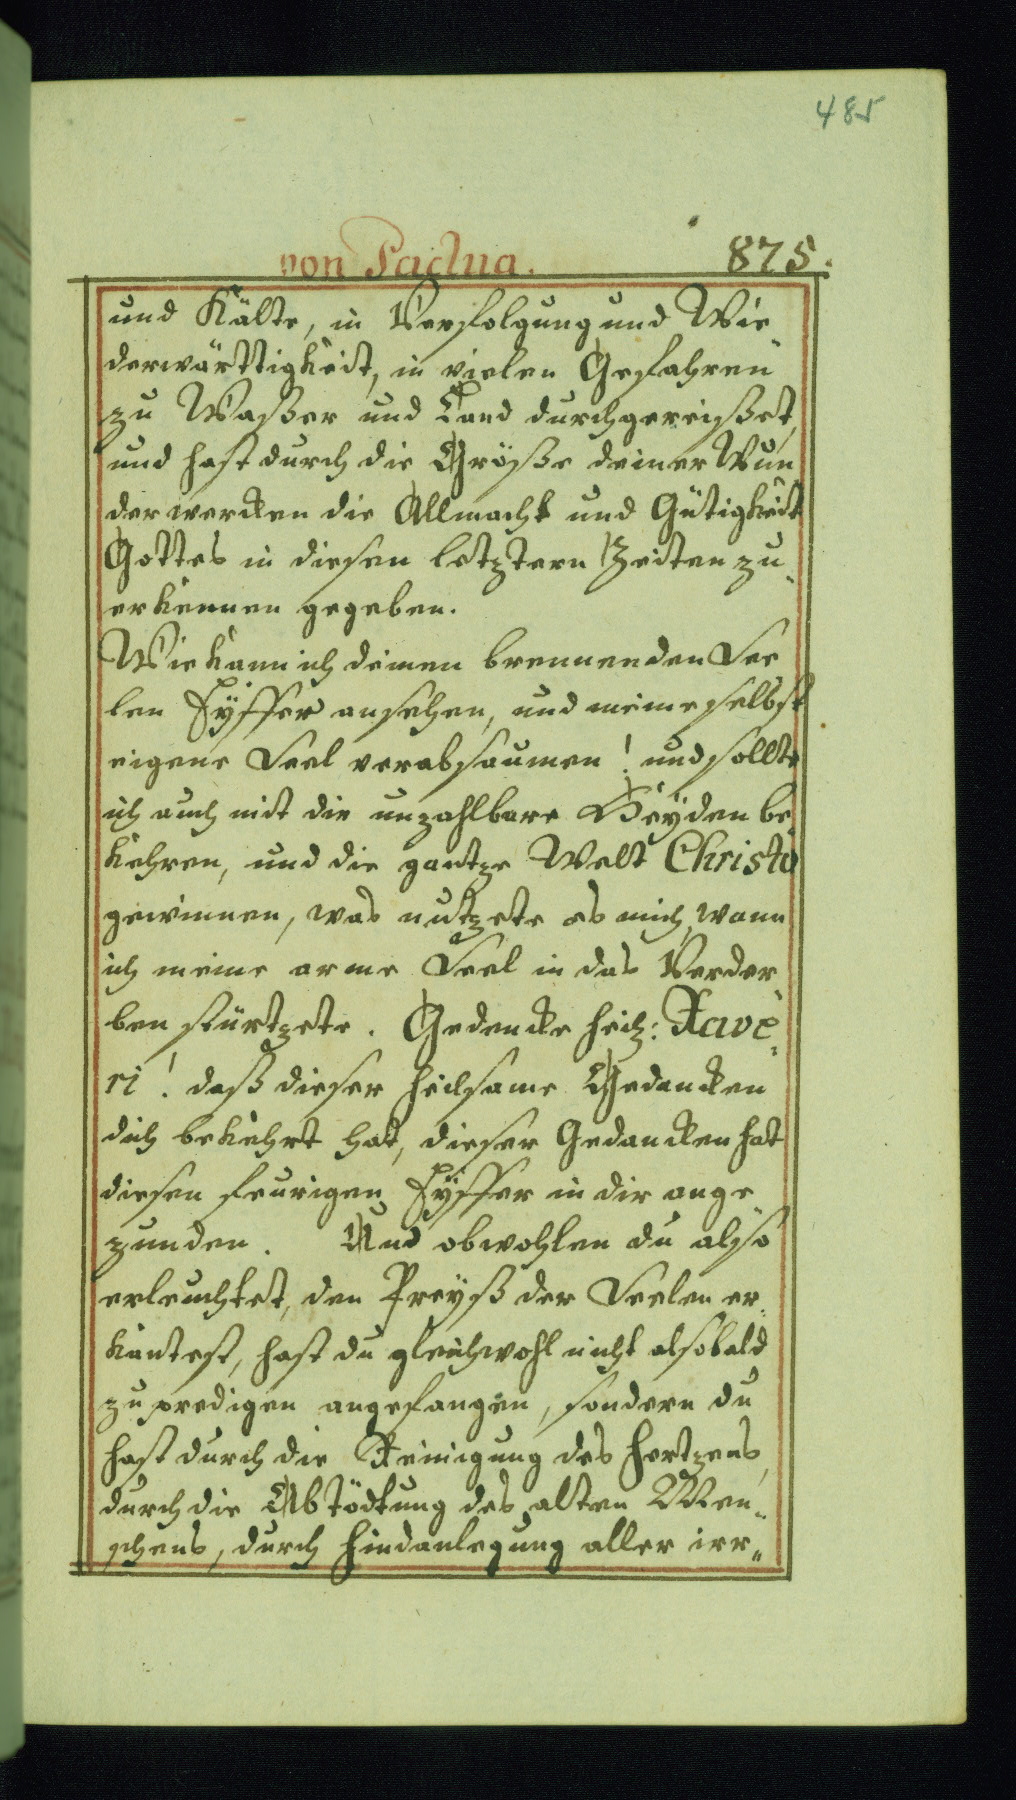 485
von Padua. 875.
und Kälte, in Verfolgung und Wie
derwärttigkeit, in vielen Gefahren
zu Waßer und Land durchgereißet,
und hast durch die Größe deiner Wun
derwercken die Allmacht und Gütigkeit
Gottes in diesen letztern Zeiten zu
erkennen gegeben.
Wie kann ich deinen brennenden See
len Eÿffer ansehen, und meine selbst
eigene Seel verabsaumen! und sollte
ich auch mit die unzahlbare Heÿden be
kehren, und die gantze Welt Christo
gewinnen, was nutzete es mich, wann
ich meine arme Seel in das Verder
ben stürtzete. Gedencke heil: Xave
ri! daß dieser heilsame Gedancken
dich bekehrt hat, dieser Gedancken hat
diesen feurigen Eÿffer in dir ange
zunden. Und obwohlen du also
erleuchtet, den Preyß der Seelen er
kantest, hast du gleichwohl nicht alsobald
zu predigen angefangen, sondern du
hast durch die Reinigung des Hertzens,
durch die Abtödtung des alten Men„
schens, durch Hindanlegung aller irr„